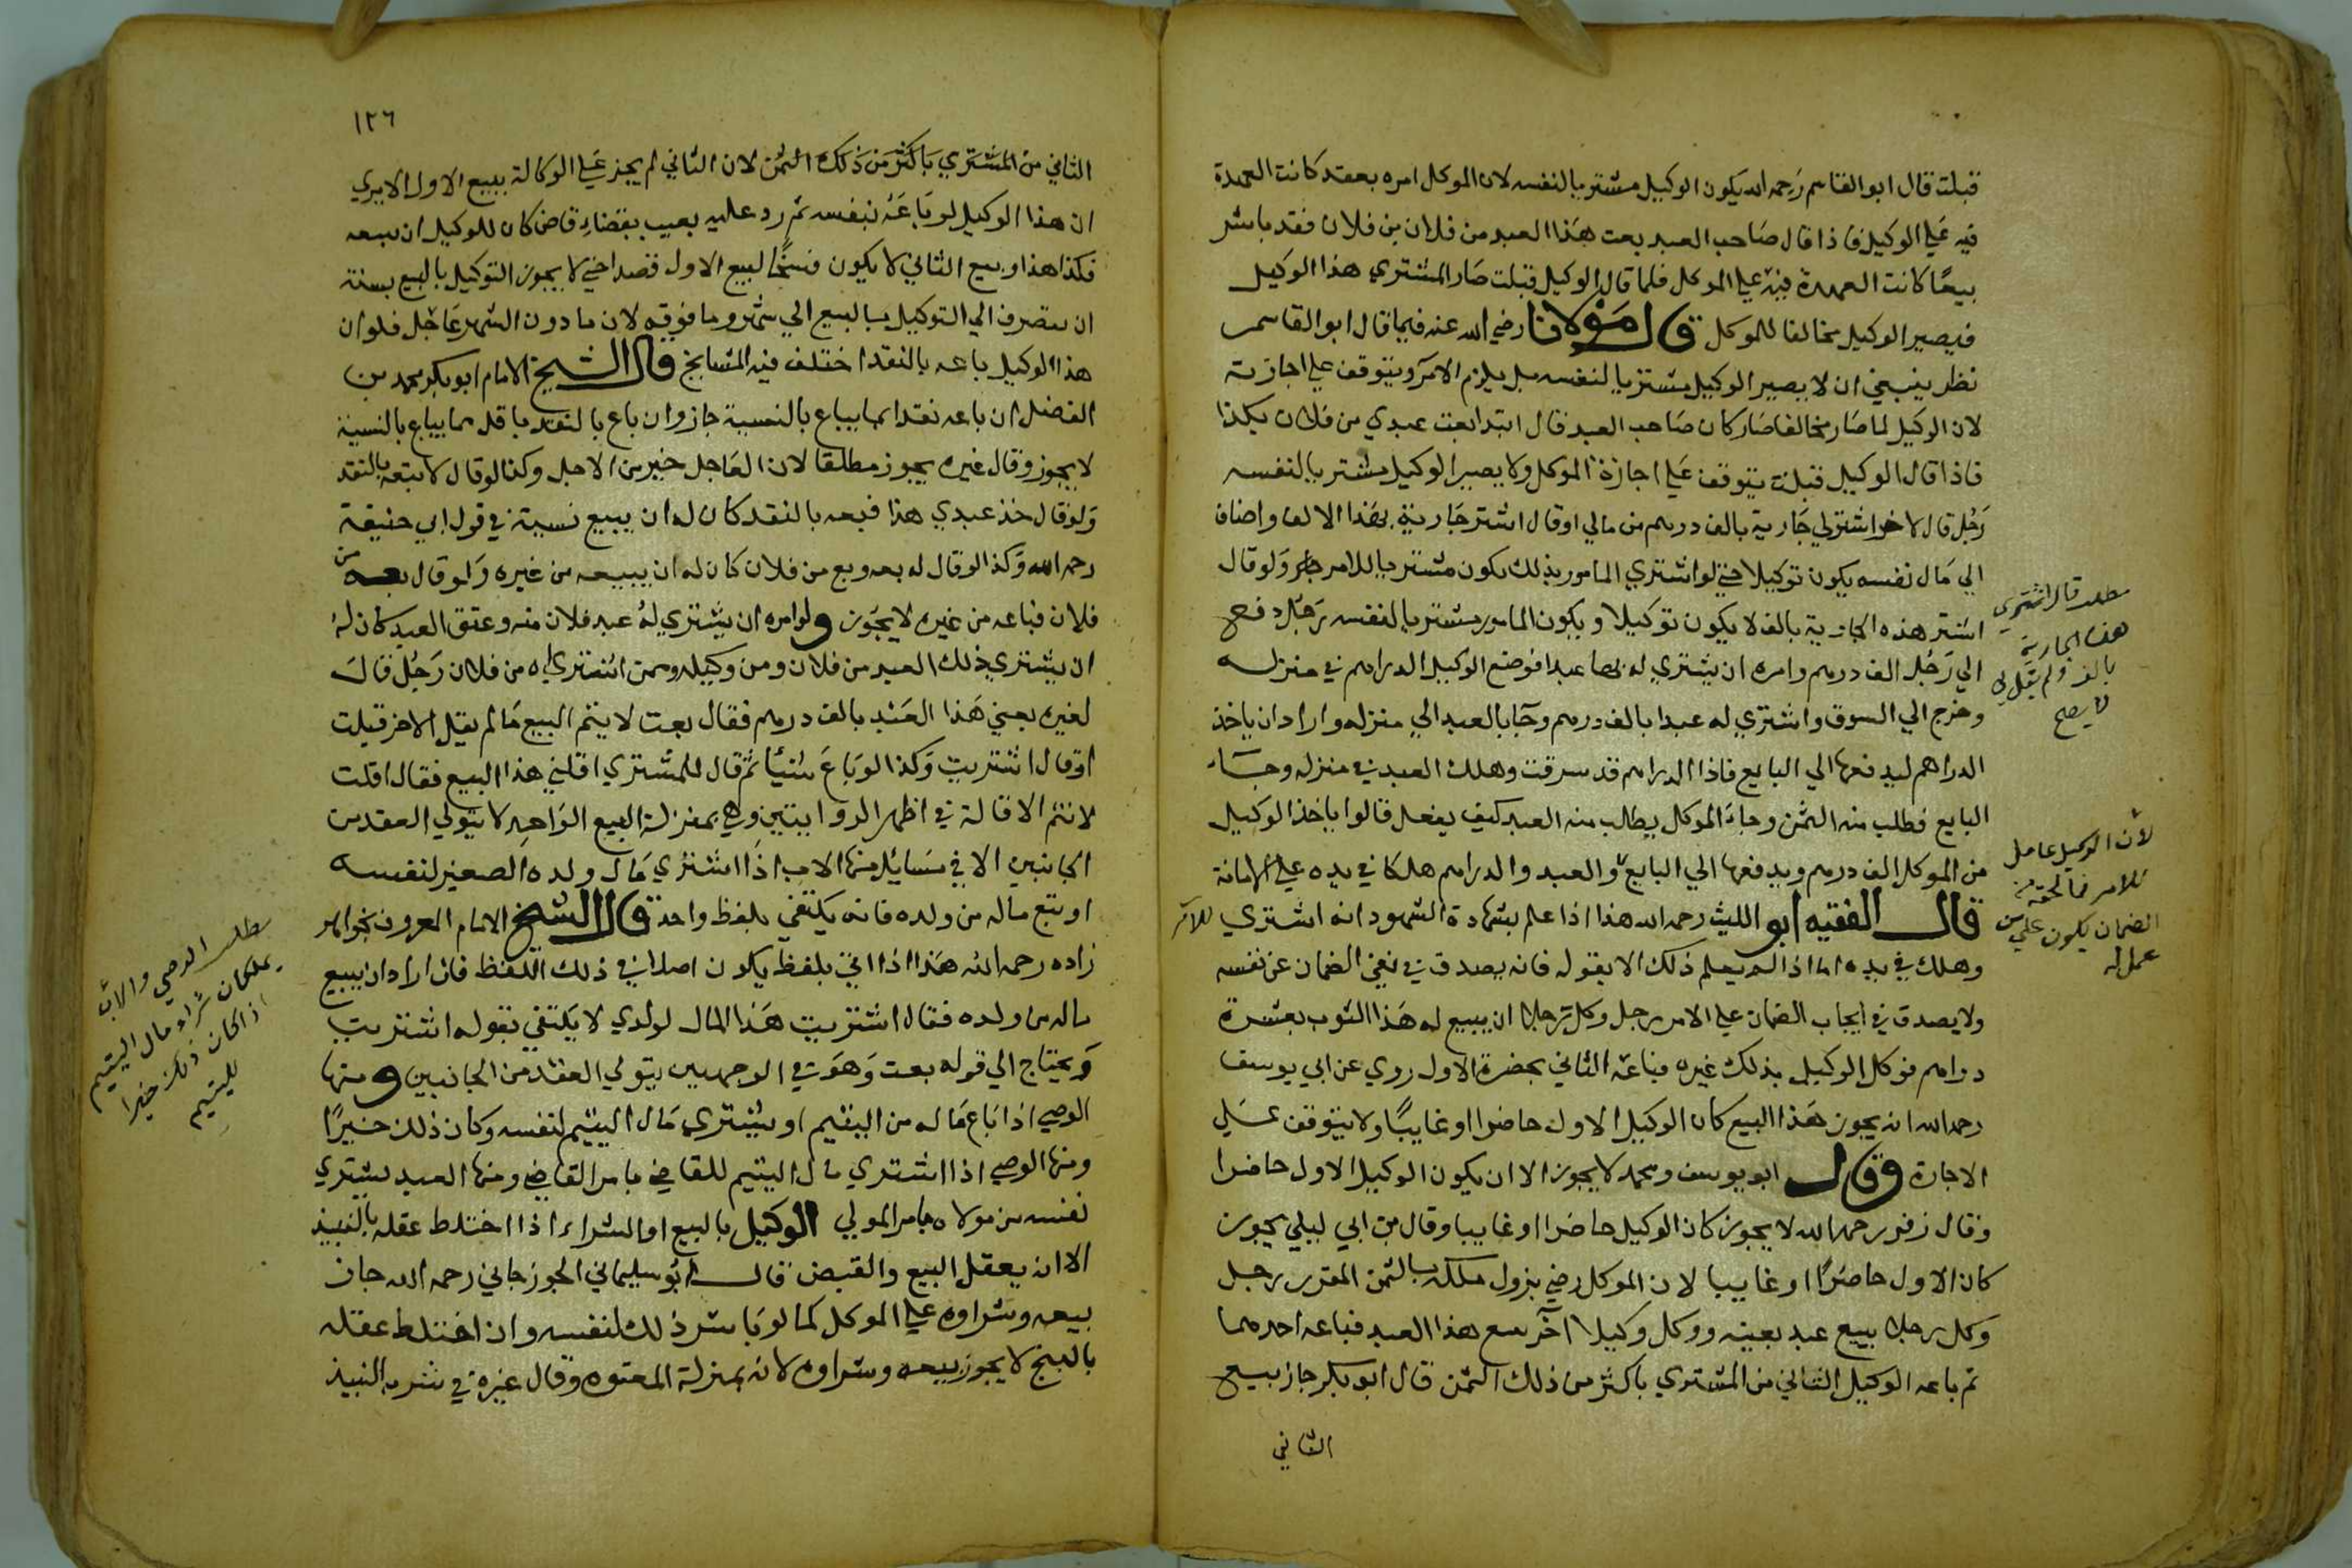 قبلت قال ابو القاسم رحمه الله يكون الوكيل مشتريا لنفسه لان الموكل امره بعقد كانت العهدة
فيه علي الوكيل فاذا قال صاحب العبد بعت هذا العبد من فلان بن فلان فقد باشر
بيعا كانت العهدة فيه علي الموكل فلما قال الوكيل قبلت صار المشتري هذا الوكيل
فيصير الوكيل مخالفا للموكل قال مولانا رضي الله عنه فيما قال ابو القاسم
نظر ينبغي ان لا يصير الوكيل مشتريا لنفسه بل يلزم الآمر ويتوقف علي اجازته
لان الوكيل لما صار مخالفا صار كان صاحب العبد قال ابتدا بعت عبدي من فلان بكذا
فاذا قال الوكيل قبلت يتوقف علي اجازة الموكل ولا يصير الوكيل مشتريا لنفسه
رجل قال لاخر اشتر لي جارية بالف درهم من مالي او قال اشتر جارية بهذا الالف واضاف
الي مال نفسه يكون توكيلا حتي لو اشتري المامور بذلك يكون مشتريا للامر ولو قال
اشتر هذه الجارية بالف لا يكون توكيلا ويكون المامور مشتريا لنفسه رجل دفع
الي رجل الف درهم وامره ان يشتري له بها عبدا فوضع الوكيل الدراهم في منزله
وخرج الي السوق واشتري له عبدا بالف درهم وجآ بالعبد الي منزله واراد ان ياخذ
الدراهم ليدفعها الي البايع فاذا الدراهم قد سرقت وهلك العبد في منزله وجاء
البايع فطلب منه الثمن وجاء الموكل يطالب منه العبد كيف يفعل قالوا ياخذ الوكيل
من الموكل الف درهم ويدفعها الي البايع والعبد والدراهم هلكا في يده علي الامانة
قال الفقيه ابو الليث رحمه الله هذا اذا علم بشهادة الشهود انه اشتري للآمر
وهلك في يده اما اذا لم يعلم ذلك الا بقوله فانه يصدق في نفي الضمان عن نفسه
ولا يصدق في ايجاب الضمان علي الامر رجل وكل رجلا ان يبيع له هذا الثوب بعشرة
دراهم فوكل الوكيل بذلك غيره فباعه الثاني بحضرة الاول روي عن ابي يوسف
رحمه الله انه يجوز هذا البيع كان الوكيل الاول حاضرا او غايبا ولا يتوقف علي
الاجازة وقال ابو يوسف ومحمد لا يجوز الا ان يكون الوكيل الاول حاضرا
وقال زفر رحمه الله لا يجوز كان الوكيل حاضرا او غايبا وقال بن ابي ليلي يجوز
كان الاول حاضرا او غايبا لان الموكل رضي بزوال ملكه بالثمن المقدر رجل
وكل رجلا ببيع عبد بعينه ووكل وكيلا آخر ببيع هذا العبد فباعه احدهما
ثم باعه الوكيل الثاني من المشتري باكثر من ذلك الثمن قال ابو بكر جاز بيع
الثاني
مطلب قال اشتري
هذه الجارية
بالف ولم يقل لي
لا يصح
لان الوكيل عامل
للامر فما لحقه من
الضمان يكون علي من
عمل له
١٢٦
الثاني من المشتري باكثر من ذلك الثمن لان الثاني لم يجز علي الوكالة ببيع الاول الا يري
ان هذا الوكيل لو باعه بنفسه ثم رد عليه بعيب بقضاء قاض كان للوكيل ان يبيعه
فكذا هذا وبيع الثاني لا يكون فسخا لبيع الاول قصدا حتي لا يجوز التوكيل بالبيع بسنة
ان يتصرف الي التوكيل بالبيع الي شهر وما فوقه لان ما دون الشهر عاجل فلو ان
هذا الوكيل باعه بالنقد اختلف فيه المشايخ قال الشيخ الامام ابو بكر محمد بن
الفضل ان باعه نقدا بما يباع بالنسية جاز وان باع بالنقد باقل مما يباع بالنسية
لا يجوز وقال غيره يجوز مطلقا لان العاجل خير من الاجل وكذا لو قال لا تبعه بالنقد
ولو قال خذ عبدي هذا فبعه بالنقد كان له ان يبيع نسية في قول ابي حنيفة
رحمه الله وكذا لو قال له بعه وبع من فلان كان له ان يبيعه من غيره ولو قال بعه من
فلان فباعه من غيره لا يجوز ولو امره ان يشتري له عبد فلان منه وعتق العبد كان له
ان يشتري ذلك العبد من فلان ومن وكيله وممن اشتراه من فلان رجل قال
لغيره بعني هذا العبد بالف درهم فقال بعت لا يتم البيع ما لم يقل الاخر قبلت
او قال اشتريت وكذا لو باع شيئا ثم قال للمشتري اقلني هذا البيع فقال اقلت
لا تتم الاقالة في اظهر الروايتين وهي بمنزلة البيع الواحد لا يتولي العقد من
الجانبين الا في مسائل منها الاب اذا اشتري مال ولده الصغير لنفسه
او بيع ماله من ولده فانه يكتفي بلفظ واحد قال الشيخ الامام المعروف بخواهر
زاده رحمه الله هذا اذا اتي بلفظ يكون اصلا في ذلك اللفظ فان اراد ان يبيع
ماله من ولده فقال اشتريت هذا المال لولدي لا يكتفي بقوله اشتريت
ويحتاج الي قوله بعت وهو في الوجهين يتولي العقد من الجانبين ومنها
الوصي اذا باع ماله من اليتيم او يشتري مال اليتيم لنفسه وكان ذلك خيرا
ومنها الوصي اذا اشتري مال اليتيم للقاضي بامر القاضي ومنها العبد يشتري
نفسه من مولاه بامر المولي الوكيل بالبيع او الشراء اذا اختلط عقله بالنبيذ
الا انه يعقل البيع والقبض قال ابو سليماني الجوزجاني رحمه الله جاز
بيعه وشراوه علي الموكل كما لو باشر ذلك لنفسه وان اختلط عقله
بالبنج لا يجوز بيعه وشراوه لانه بمنزلة المعتوه وقال غيره في شرب النبيذ
مطلب الوصي والاب
يملكان شراء مال اليتيم
اذا كان ذلك خيرا
لليتيم